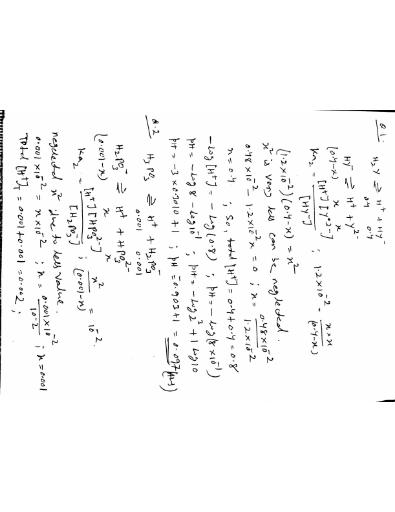 Q.1. H₂Y ⇌ H⁺ + HY⁻
0.4 0.4
HY⁻ ⇌ H⁺ + Y²⁻
(0.4-x) x x
Ka₂ = [H⁺][Y²⁻] / [HY⁻] ; 1.2×10⁻² = x×x / (0.4-x)
(1.2×10⁻²)(0.4-x) = x²
x² is very less can be neglected.
0.48×10⁻² - 1.2×10⁻²x = 0 ; x = 0.48×10⁻² / 1.2×10⁻²
x = 0.4 ; So, total [H⁺] = 0.4+0.4 = 0.8
-log[H⁺] = -log(0.8) ; pH = -log(8×10⁻¹)
pH = -log8 - log10⁻¹ ; pH = -log2³ + 1log10
pH = -3×0.3010+1 ; pH = -0.903+1 = 0.097
Q.2 H₃PO₃ ⇌ H⁺ + H₂PO₃⁻
0.001 0.001
H₂PO₃⁻ ⇌ H⁺ + HPO₃²⁻
(0.001-x) x x
Ka₂ = [H⁺][HPO₃²⁻] / [H₂PO₃⁻] ; x² / (0.001-x) = 10⁻²
neglected x² due to less value.
0.001×10⁻² = x×10⁻² ; x = 0.001×10⁻² / 10⁻² ; x = 0.001
Total [H⁺] = 0.001+0.001 = 0.002 ;